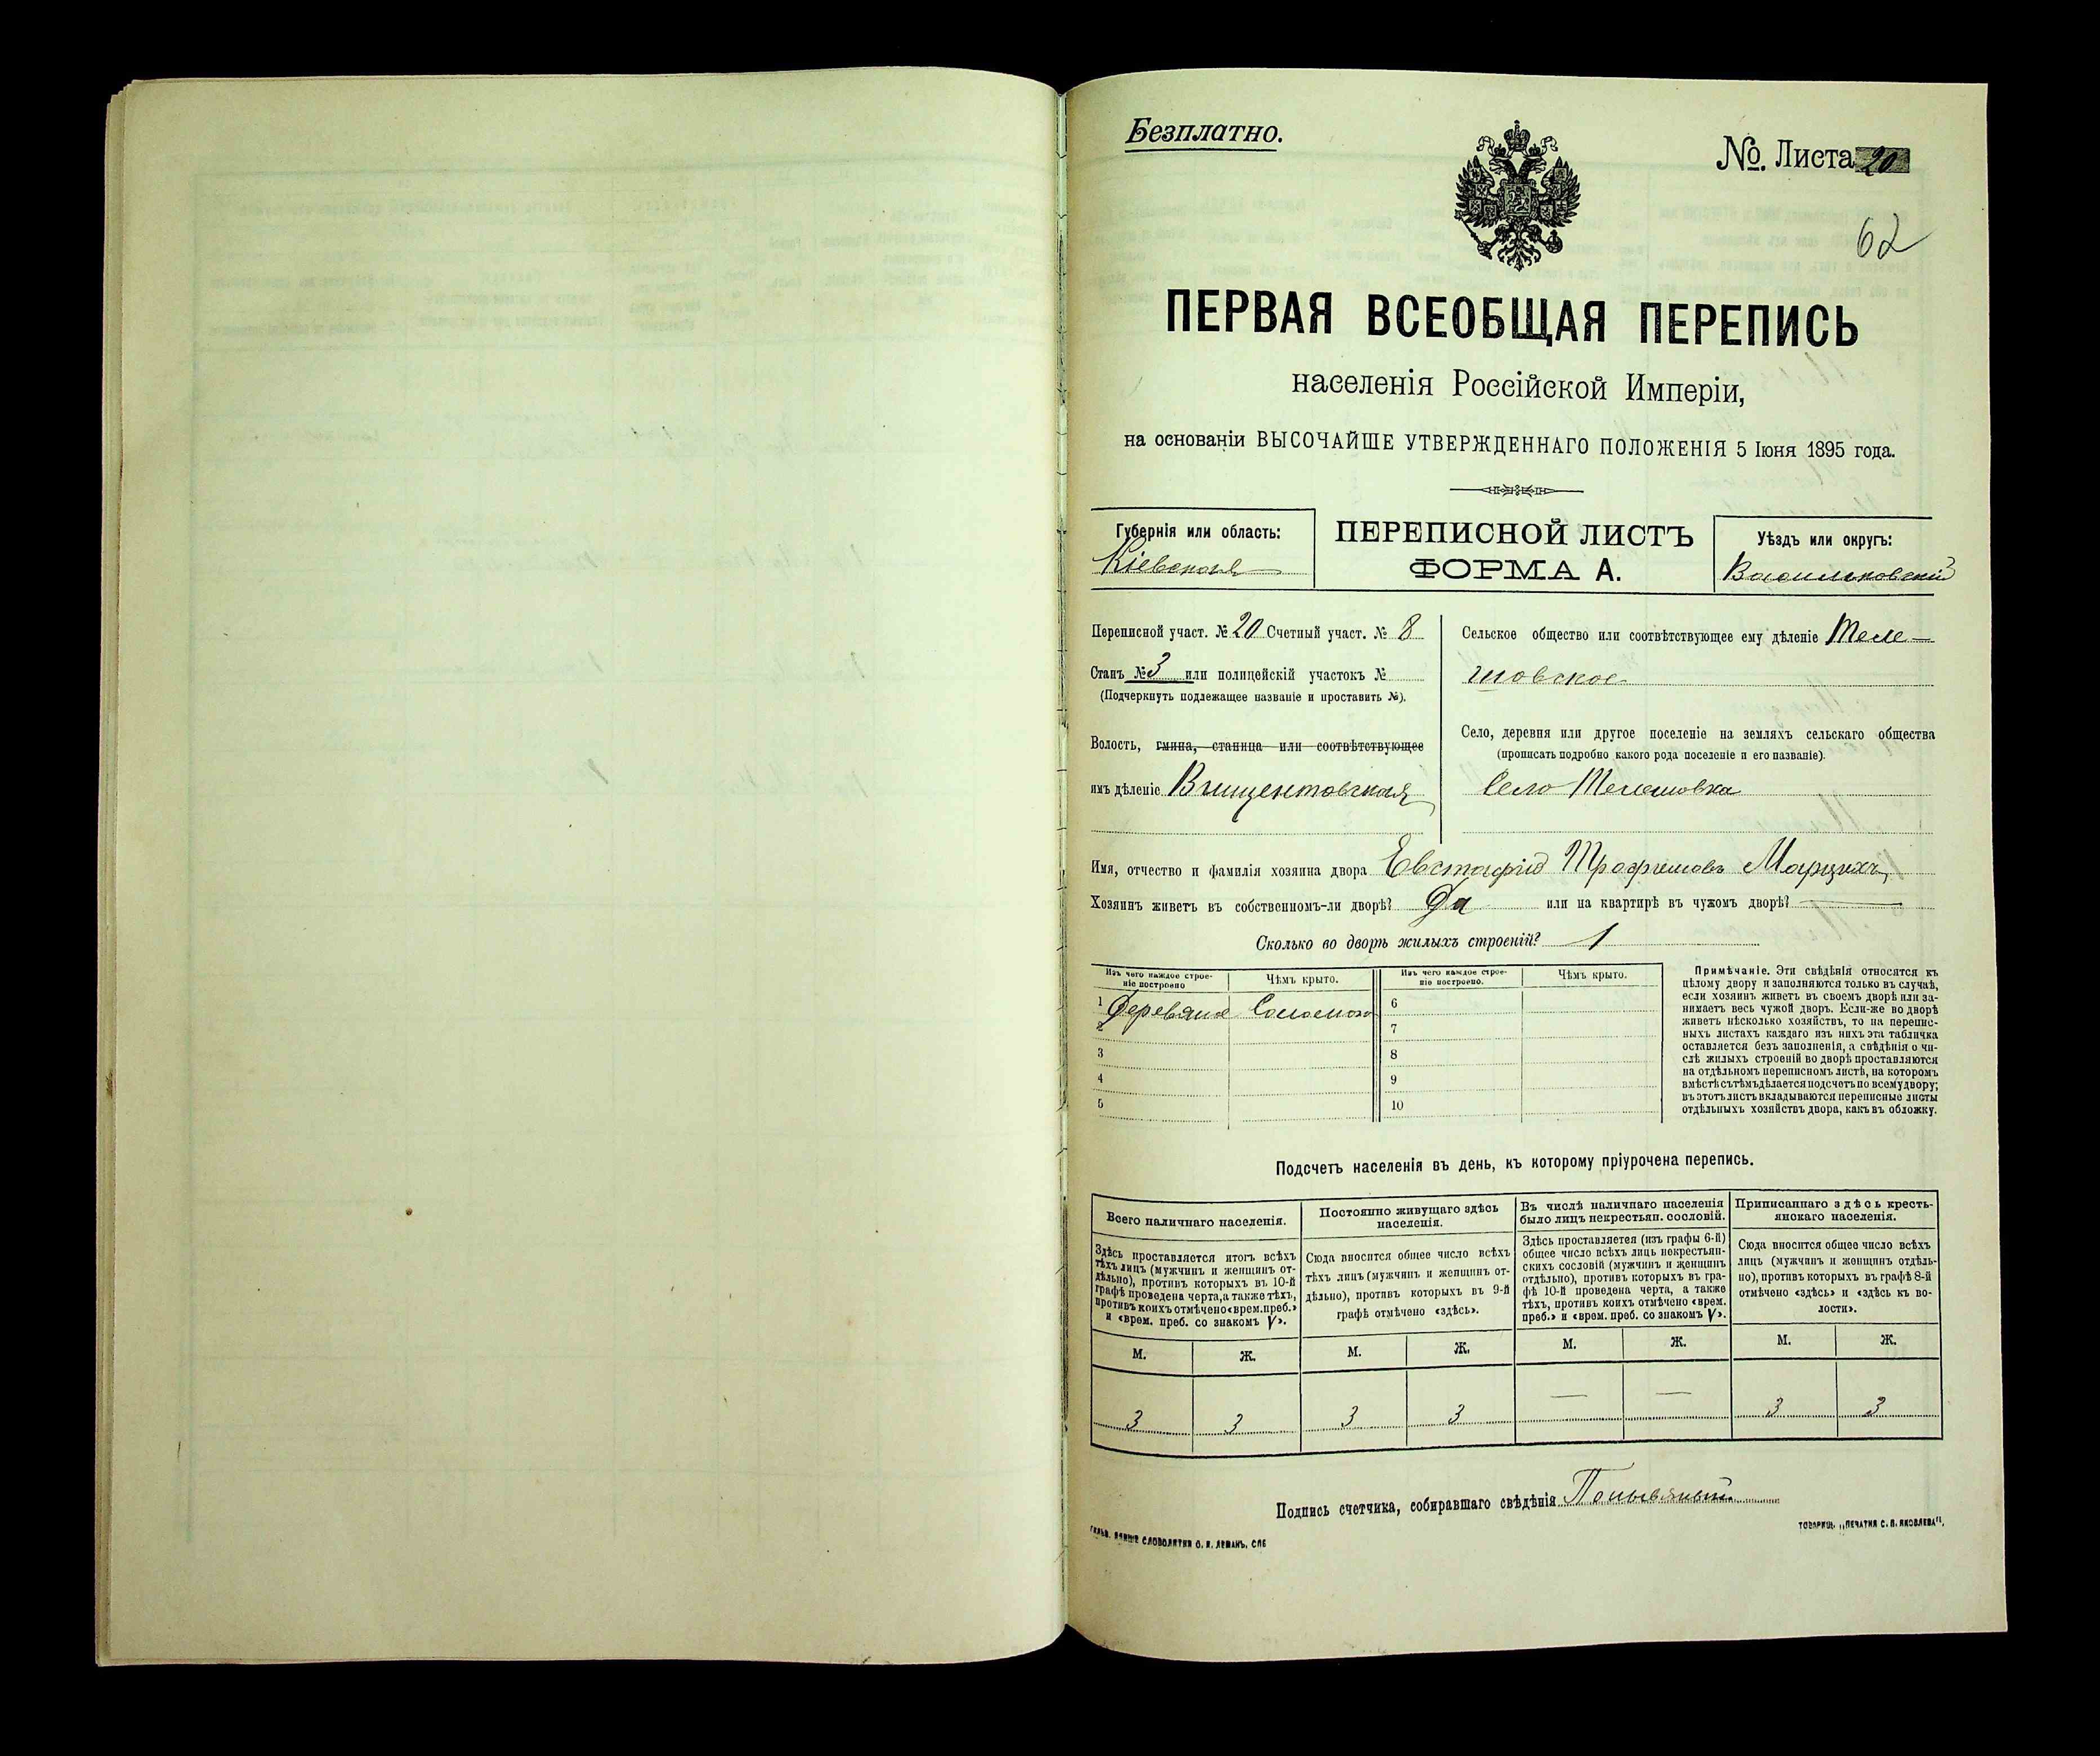 Безплатно.
№. Листа 20
62
ПЕРВАЯ ВСЕОБЩАЯ ПЕРЕПИСЬ
населенія Россійской Имперіи,
на основаніи ВЫСОЧАЙШЕ УТВЕРЖДЕННАГО ПОЛОЖЕНІЯ 5 Іюня 1895 года.
Губернія или область:
Кіевская
ПЕРЕПИСНОЙ ЛИСТЪ
ФОРМА А.
Уѣздъ или округъ:
Васильковскій
Переписной участ. № 20 Счетный участ. № 8
Станъ № 3 или полицейскій участокъ №
(Подчеркнуть подлежащее названіе и проставить №).
Волость, гмина, станица или соотвѣтствующее
имъ дѣленіе Винцентовская
Сельское общество или соотвѣтствующее ему дѣленіе Теле-
шовское
Село, деревня или другое поселеніе на земляхъ сельскаго общества
(прописать подробно какого рода поселеніе и его названіе).
Село Телешовка
Имя, отчество и фамилія хозяина двора Евстафій Трофимовъ
Хозяинъ живетъ въ собственномъ-ли дворѣ? Да или на квартирѣ въ чужомъ дворѣ?
Сколько во дворѣ жилыхъ строеній? 1
Изъ чего каждое строе-
ніе построено
Чѣмъ крыто.
Изъ чего каждое строе-
ніе построено.
Чѣмъ крыто.
1 Деревяное Соломою
2
3
4
5
6
7
8
9
10
Примѣчаніе. Эти свѣдѣнія относятся къ
цѣлому двору и заполняются только въ случаѣ,
если хозяинъ живетъ въ своемъ дворѣ или за-
нимаетъ весь чужой дворъ. Если-же во дворѣ
живетъ нѣсколько хозяйствъ, то на перепис-
ныхъ листахъ каждаго изъ нихъ эта табличка
оставляется безъ заполненія, а свѣдѣнія о чи-
слѣ жилыхъ строеній во дворѣ проставляются
на отдѣльномъ переписномъ листѣ, на которомъ
вмѣстѣ съ тѣмъ дѣлается подсчетъ по всему двору;
въ этотъ листъ вкладываются переписные листы
отдѣльныхъ хозяйствъ двора, какъ въ обложку.
Подсчетъ населенія въ день, къ которому пріурочена перепись.
Всего наличнаго населенія.
Здѣсь проставляется итогъ всѣхъ
тѣхъ лицъ (мужчинъ и женщинъ от-
дѣльно), противъ которыхъ въ 10-й
графѣ проведена черта, а также тѣхъ,
противъ коихъ отмѣчено «врем. преб.»
и «врем. преб. со знакомъ V».
Постоянно живущаго здѣсь
населенія.
Сюда вносится общее число всѣхъ
тѣхъ лицъ (мужчинъ и женщинъ от-
дѣльно), противъ которыхъ въ 9-й
графѣ отмѣчено «здѣсь».
Въ числѣ наличнаго населенія
было лицъ некрестьян. сословій.
Здѣсь проставляется (изъ графы 6-й)
общее число всѣхъ лицъ некрестьян-
скихъ сословій (мужчинъ и женщинъ
отдѣльно), противъ которыхъ въ гра-
фѣ 10-й проведена черта, а также
тѣхъ, противъ коихъ отмѣчено «врем.
преб.» и «врем. преб. со знакомъ V».
Приписаннаго здѣсь кресть-
янскаго населенія.
Сюда вносится общее число всѣхъ
лицъ (мужчинъ и женщинъ отдѣль-
но), противъ которыхъ въ графѣ 8-й
отмѣчено «здѣсь» и «здѣсь къ во-
лости».
М. Ж. М. Ж. М. Ж. М. Ж.
3 3 3 3 — — 3 3
Подпись счетчика, собиравшаго свѣдѣнія
СЛОВОЛИТНИ О. И. ЛЕМАНЪ, СПБ
ТОВАРИЩ. „ПЕЧАТНЯ С. П. ЯКОВЛЕВА".